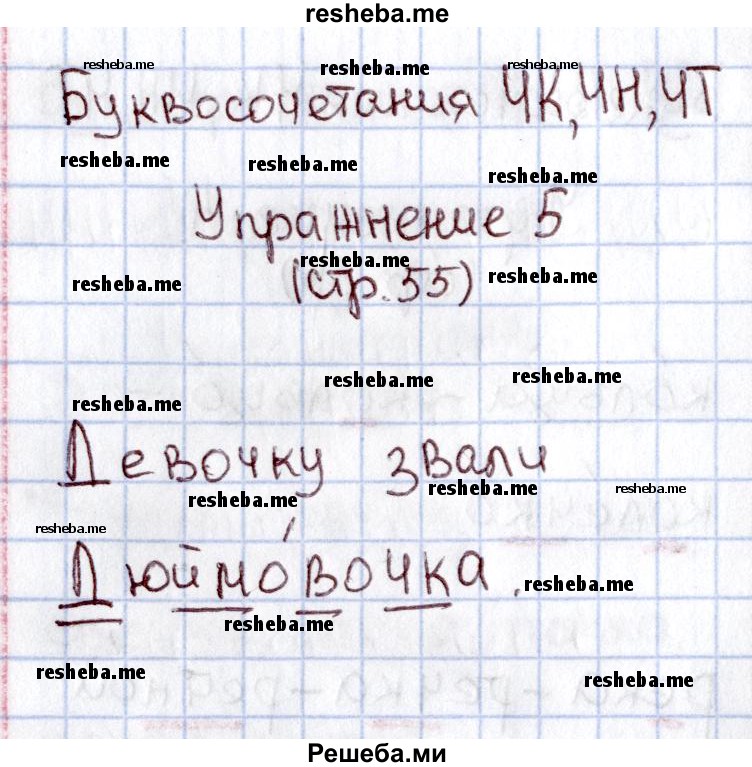 resheba.me
resheba.me resheba.me resheba.me
Буквосочетания ЧК, ЧН, ЧТ
resheba.me resheba.me resheba.me
Упражнение 5
resheba.me
resheba.me (стр. 55) resheba.me
resheba.me resheba.me
resheba.me
Девочку звали
resheba.me resheba.me resheba.me
resheba.me
Дюймо́вочка. resheba.me
resheba.me
resheba.me resheba.me
Решеба.ми